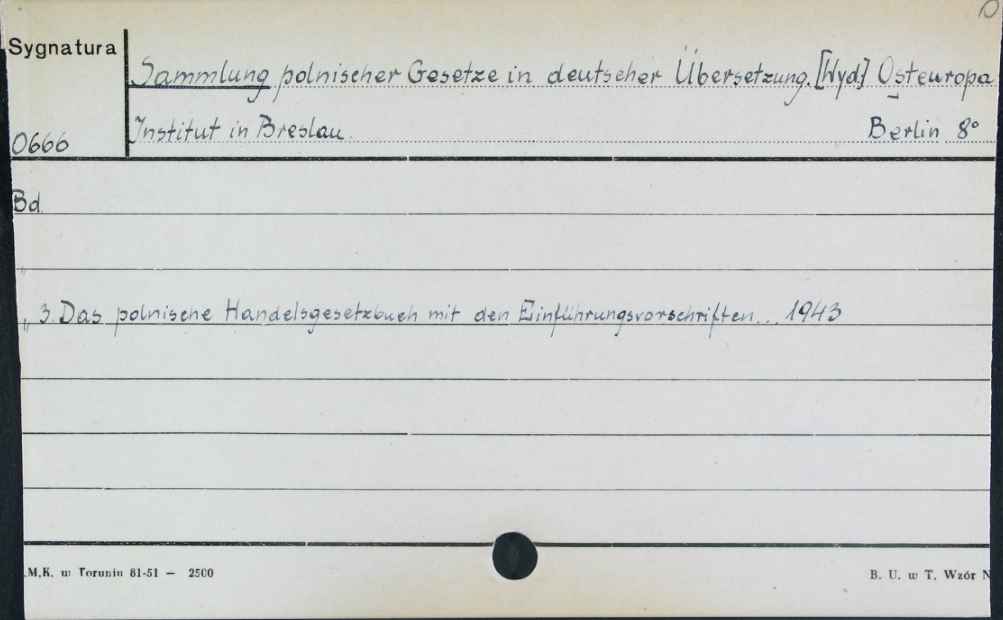 D
Sygnatura
Sammlung polnischer Gesetze in deutscher Übersetzung. [Wyd] Osteuropa
Institut in Breslau. Berlin 8°
0666
Bd.
"
„ 3. Das polnische Handelsgesetzbuch mit den Einführungsvorschriften... 1943
.M.K. w Toruniu 81-51 — 2500
B. U. w T. Wzór N